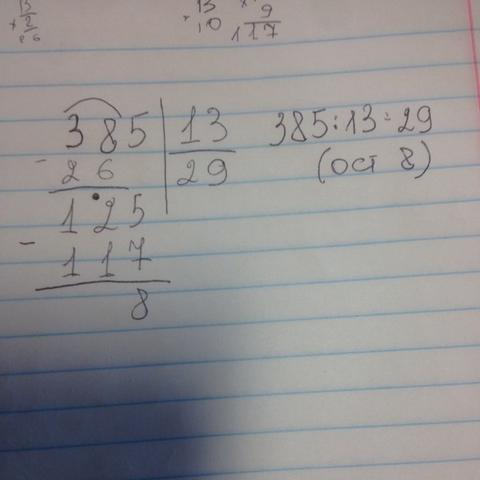 13
× 2
26
13
9
117
385 | 13
- 26 | 29
125
- 117
8
385:13=29
(ост 8)